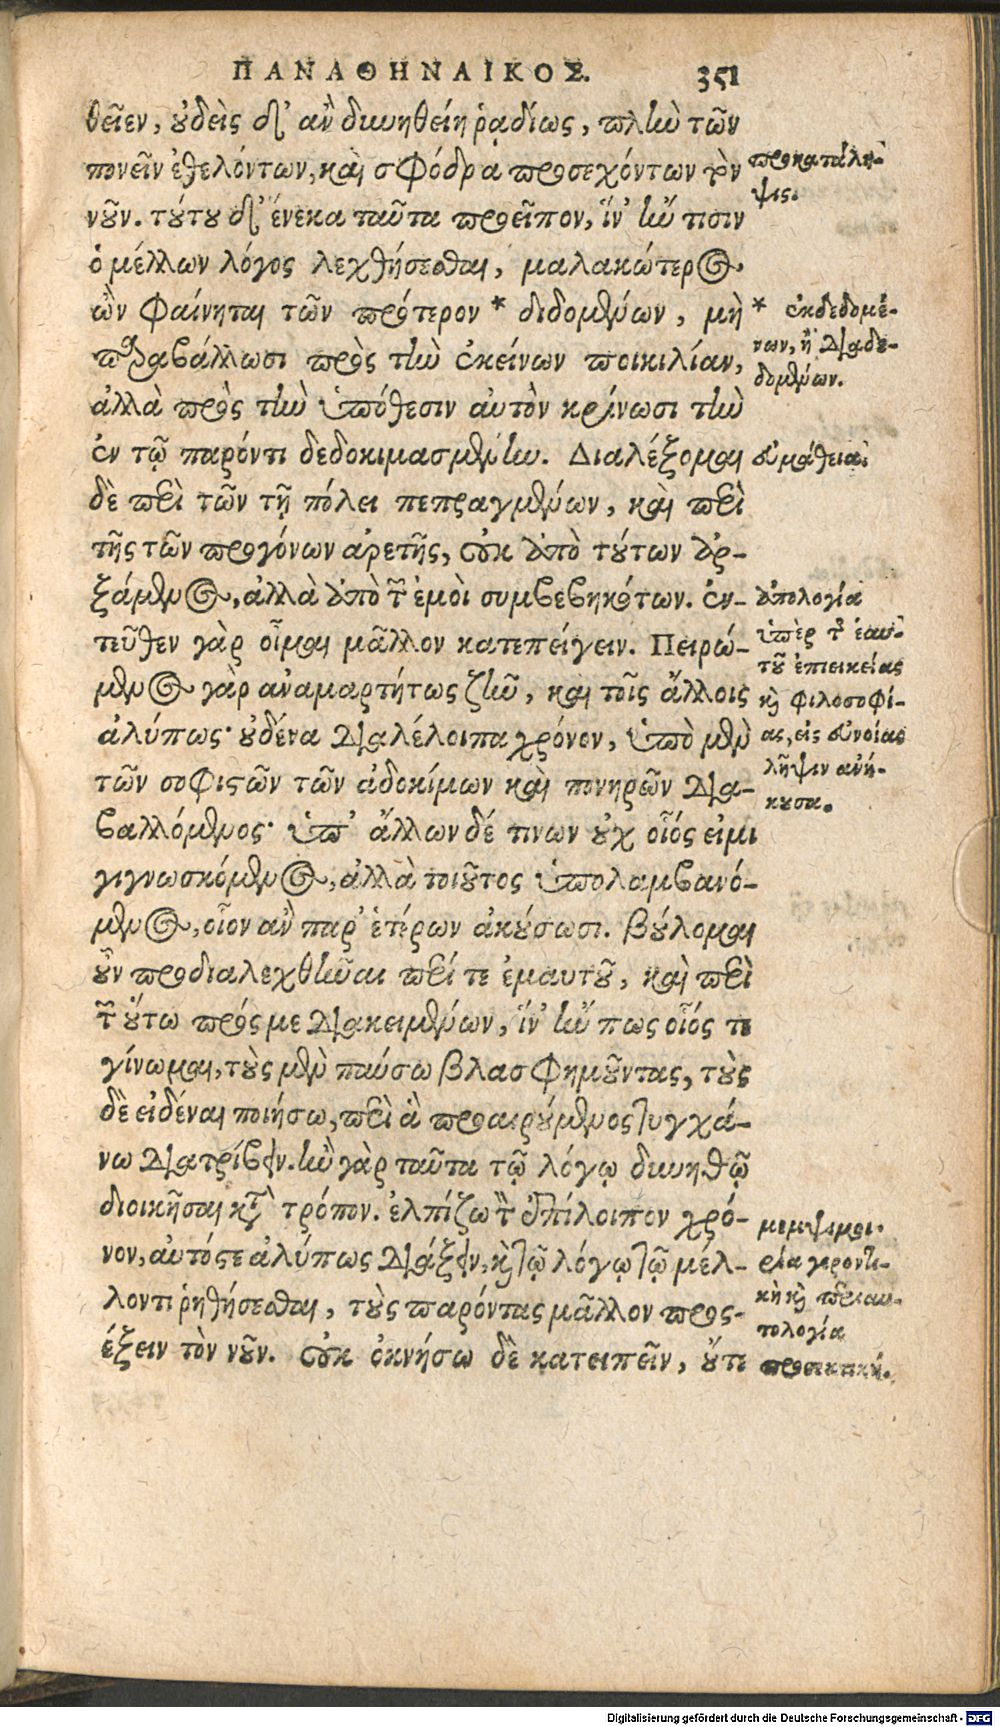 ΠΑΝΑΘΗΝΑΪΚΟΣ. 351
θεῖεν, οὐδεὶς δ' ἂν δυνηθείη ῥᾳδίως, πλὴν τῶν
πονεῖν ἐθελόντων, καὶ σφόδρα προσεχόντων τὸν
νοῦν. τούτου δ' ἕνεκα ταῦτα προεῖπον, ἵν' ἤν τισιν
ὁ μέλλων λόγος λεχθήσεσθαι, μαλακώτερος
ὢν φαίνηται τῶν πρότερον * διδομένων, μὴ
παραβάλλωσι πρὸς τὴν ἐκείνων ποικιλίαν,
ἀλλὰ πρὸς τὴν ὑπόθεσιν αὐτὸν κρίνωσι τὴν
ἐν τῷ παρόντι δεδοκιμασμένην. Διαλέξομαι
δὲ περὶ τῶν τῇ πόλει πεπραγμένων, καὶ περὶ
τῆς τῶν προγόνων ἀρετῆς, οὐκ ἀπὸ τούτων ἀρ-
ξάμενος, ἀλλὰ ἀπὸ τῶν ἐμοὶ συμβεβηκότων. ἐν-
τεῦθεν γὰρ οἶμαι μᾶλλον κατεπείγειν. Πειρώ-
μενος γὰρ ἀναμαρτήτως ζῆν, καὶ τοῖς ἄλλοις
ἀλύπως· οὐδένα διαλέλοιπα χρόνον, ὑπὸ μὲν
τῶν σοφιστῶν τῶν ἀδοκίμων καὶ πονηρῶν δια-
βαλλόμενος· ὑπ' ἄλλων δέ τινων οὐχ οἷός εἰμι
γιγνωσκόμενος, ἀλλὰ τοιοῦτος ὑπολαμβανό-
μενος, οἷον ἂν παρ' ἑτέρων ἀκούσωσι. βούλομαι
οὖν προδιαλεχθῆναι περί τε ἐμαυτοῦ, καὶ περὶ
τῶν οὕτω πρός με διακειμένων, ἵν' ἤν πως οἷός τε
γίνωμαι, τοὺς μὲν παύσω βλασφημοῦντας, τοὺς
δὲ εἰδέναι ποιήσω, περὶ ἃ προαιρούμενος τυγχά-
νω διατρίβειν. ἢν γὰρ ταῦτα τῷ λόγῳ δυνηθῶ
διοικῆσαι κατὰ τρόπον. ἐλπίζω τὸν ἐπίλοιπον χρό-
νον, αὐτός τε ἀλύπως διάξειν, καὶ τῷ λόγῳ τῷ μέλ-
λοντι ῥηθήσεσθαι, τοὺς παρόντας μᾶλλον προς-
έξειν τὸν νοῦν. οὐκ ὀκνήσω δὲ κατειπεῖν, οὔτε
προκατάλη-
ψις.
* ἐκδεδομέ-
νων, ἢ διαδε-
δομένων.
εὐμάθεια.
ἀπολογία
ὑπὲρ τῆς ἑαυ-
τοῦ ἐπιεικείας
καὶ φιλοσοφί-
ας, εἰς εὐνοίας
λῆψιν ἀνή-
κουσα.
μεμψιμοι-
ρία γεροντι-
κὴ καὶ περιαυ-
τολογία